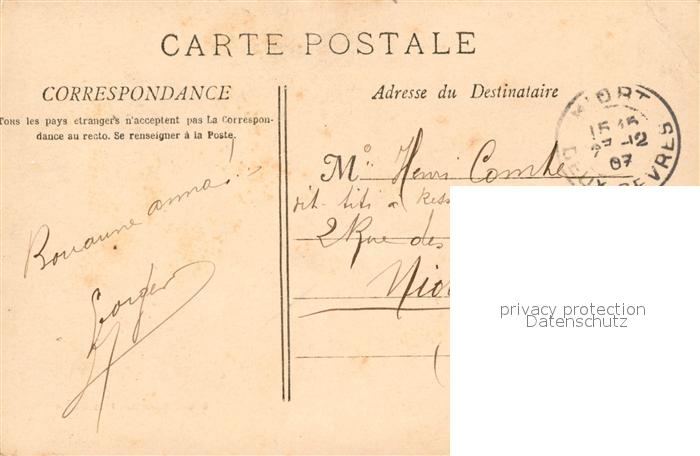 CARTE POSTALE
CORRESPONDANCE
Tous les pays etrangers n'acceptent pas La Correspon-
dance au recto. Se renseigner à la Poste.
Adresse du Destinataire
NIORT
15 45
27-12
07
DEUX SEVRES
Mr Henri Combe
dit titi à
2 Rue des
Nior
Bonanne anna!
Georges
privacy protection
Datenschutz